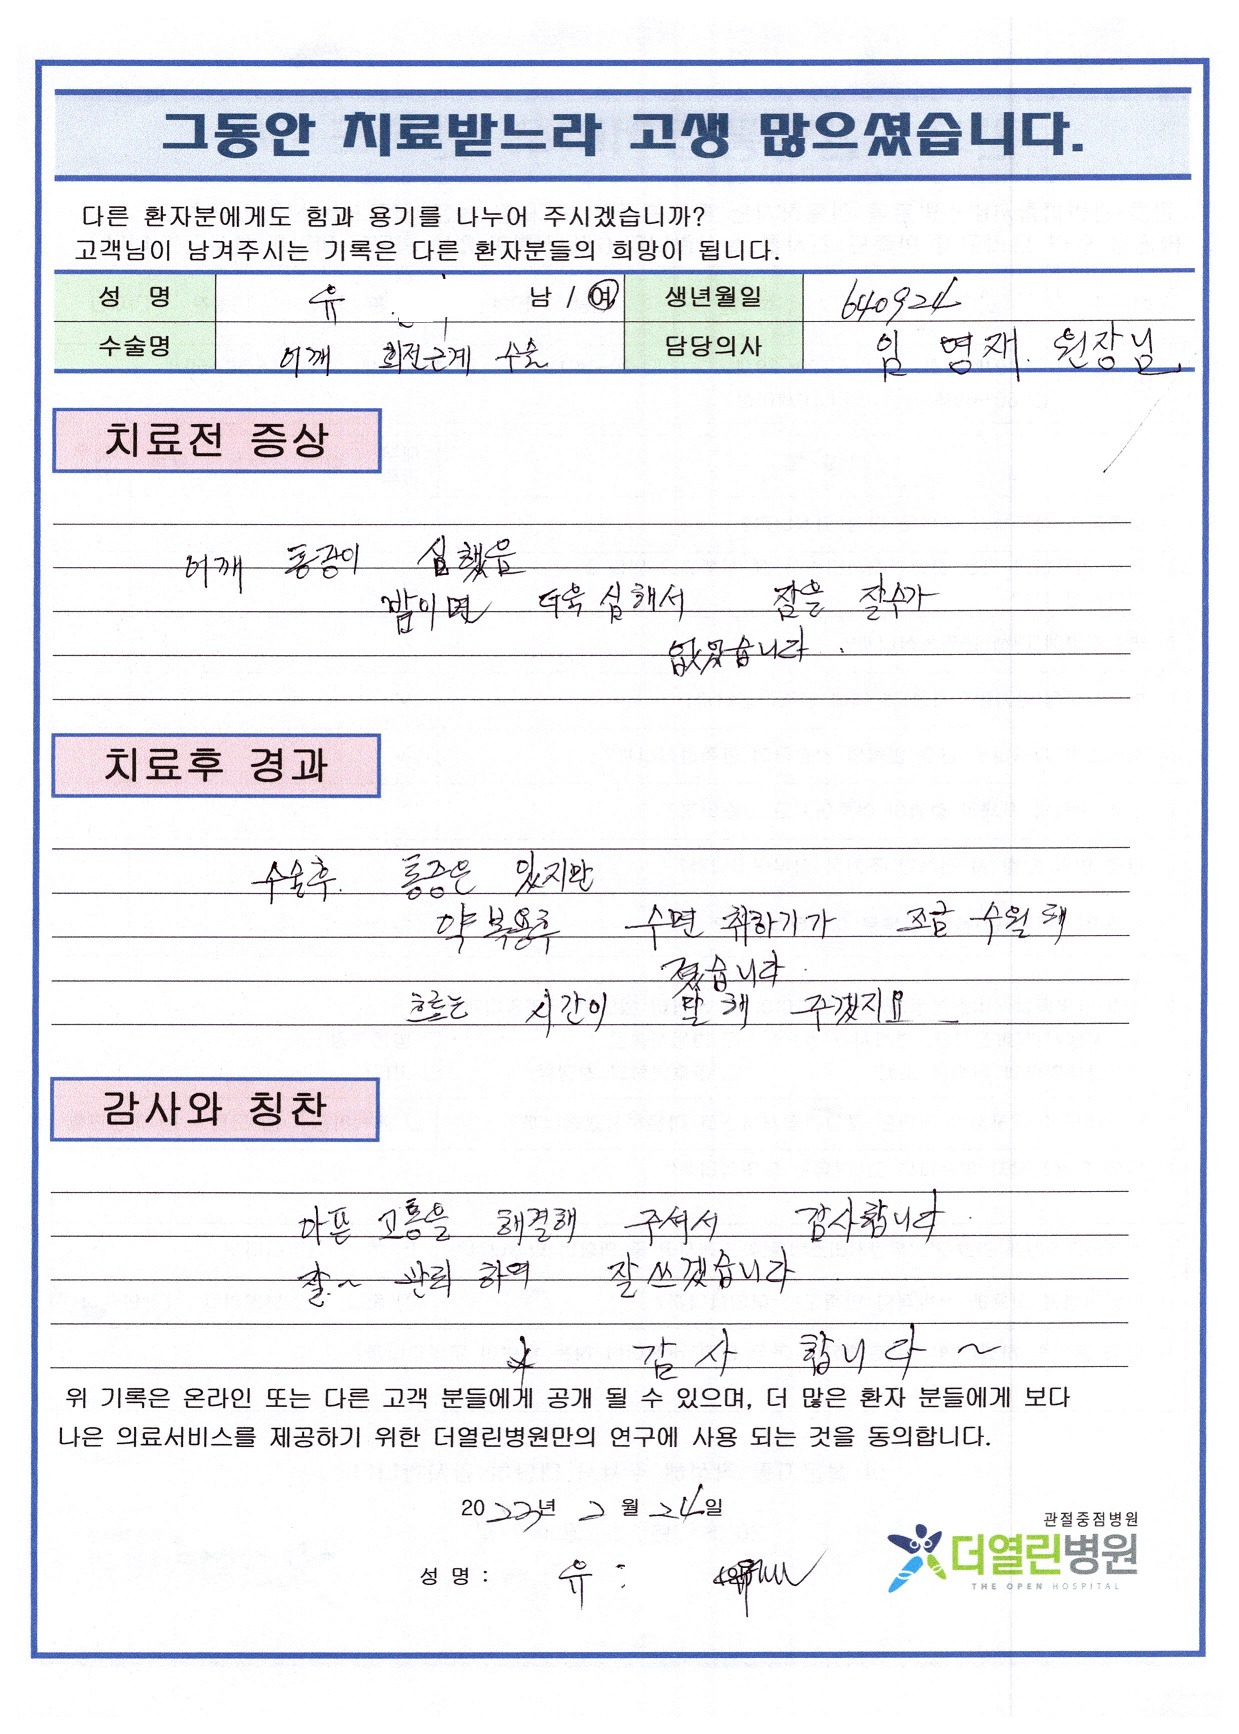 그동안 치료받느라 고생 많으셨습니다.
다른 환자분에게도 힘과 용기를 나누어 주시겠습니까?
고객님이 남겨주시는 기록은 다른 환자분들의 희망이 됩니다.
성 명 유 남 / 여 생년월일 640924
수술명 어깨 회전근계 수술 담당의사 임 명재 원장님
치료전 증상
어깨 통증이 심했음
밤이면 더욱 심해서 잠을 잘수가
없었습니다.
치료후 경과
수술후. 통증은 있지만
약 복용후 수면 취하기가 조금 수월해
졌습니다.
흐르는 시간이 말해 주겠지요
감사와 칭찬
아픈 고통을 해결해 주셔서 감사합니다.
잘~ 관리하여 잘 쓰겠습니다
* 감사 합니다~
위 기록은 온라인 또는 다른 고객 분들에게 공개 될 수 있으며, 더 많은 환자 분들에게 보다
나은 의료서비스를 제공하기 위한 더열린병원만의 연구에 사용 되는 것을 동의합니다.
2023년 2월 24일
성 명 : 유
관절중점병원
더열린병원
THE OPEN HOSPITAL